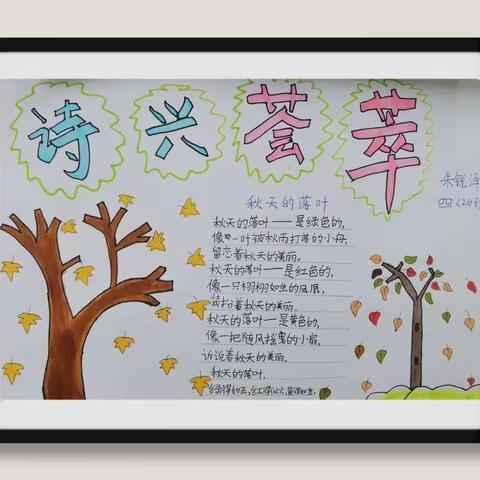 诗兴荟萃
朱锐泽
四(2)
秋天的落叶
秋天的落叶——是绿色的,
像一叶被秋雨打落的小舟,
留恋着秋天的美丽。
秋天的落叶——是红色的,
像一只栩栩如生的凤凰,
装扮着秋天的美丽。
秋天的落叶—是黄色的,
像一把随风摇曳的小扇,
诉说着秋天的美丽。
秋天的落叶,
绿得如玉,红得似火,黄得如金。